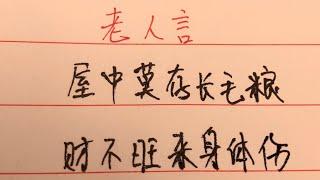 老人言
屋中莫存长毛粮
财不旺来身体伤